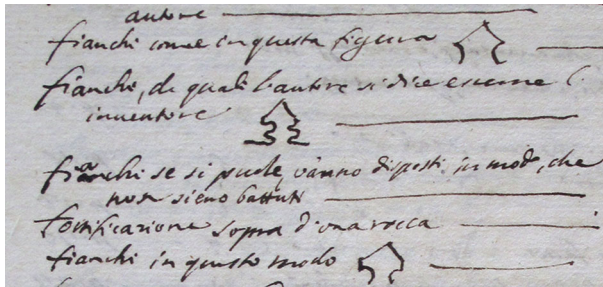 autore
fianchi come in questa figura
fianchi, de quali l'autore si dice esserne l'
inventore
fianchi se si puole, vanno disposti in modo, che
non sieno battuti
fortificazione sopra d'una rocca
fianchi in questo modo